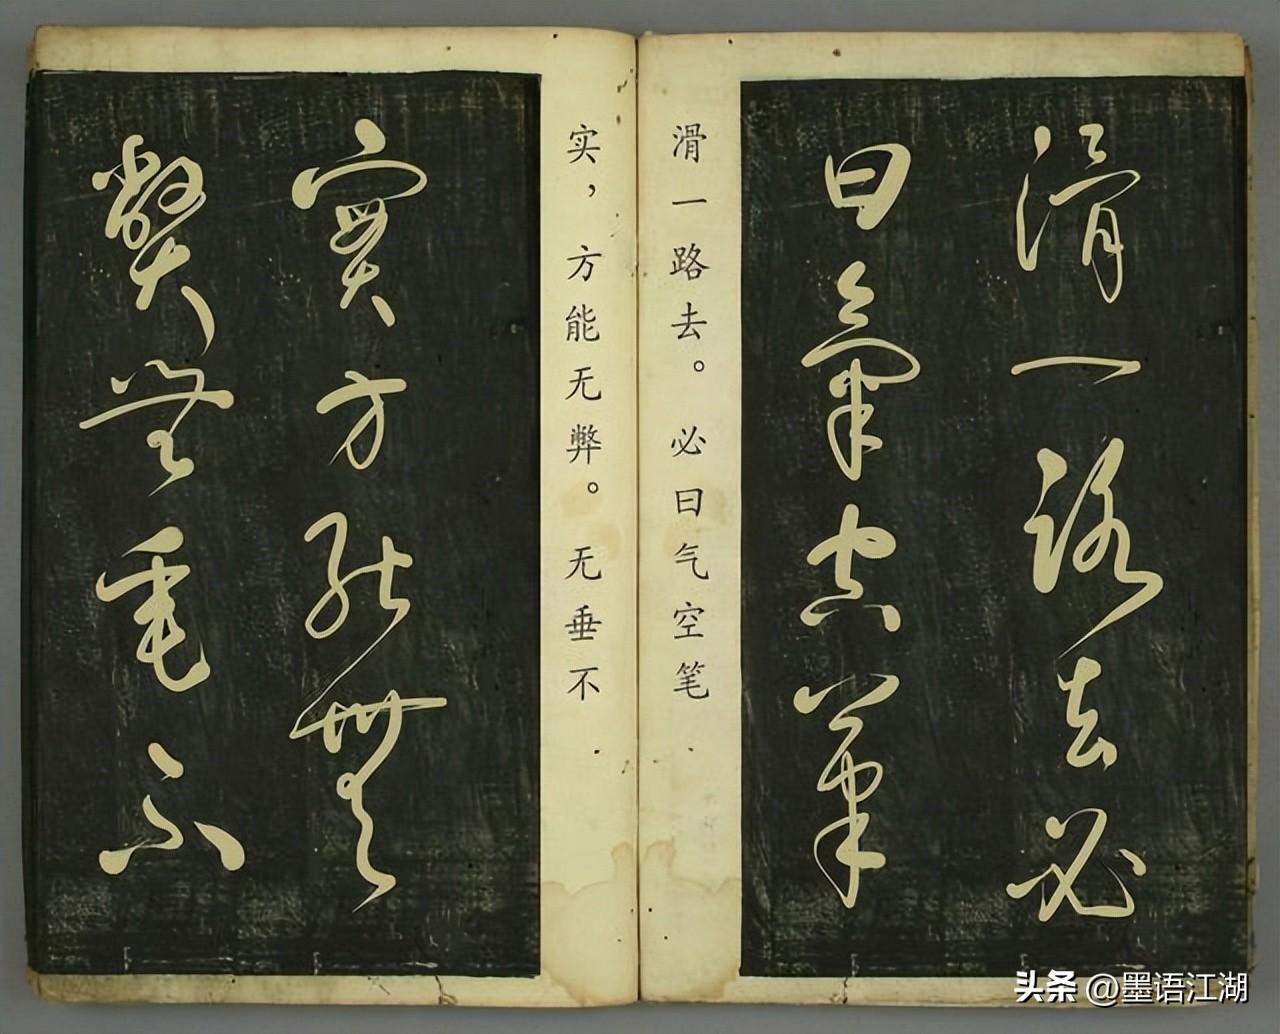 滑一路去必
曰氣空筆
滑一路去。必曰气空笔
实，方能无弊。无垂不
實方能無
獘無垂不
头条 @墨语江湖